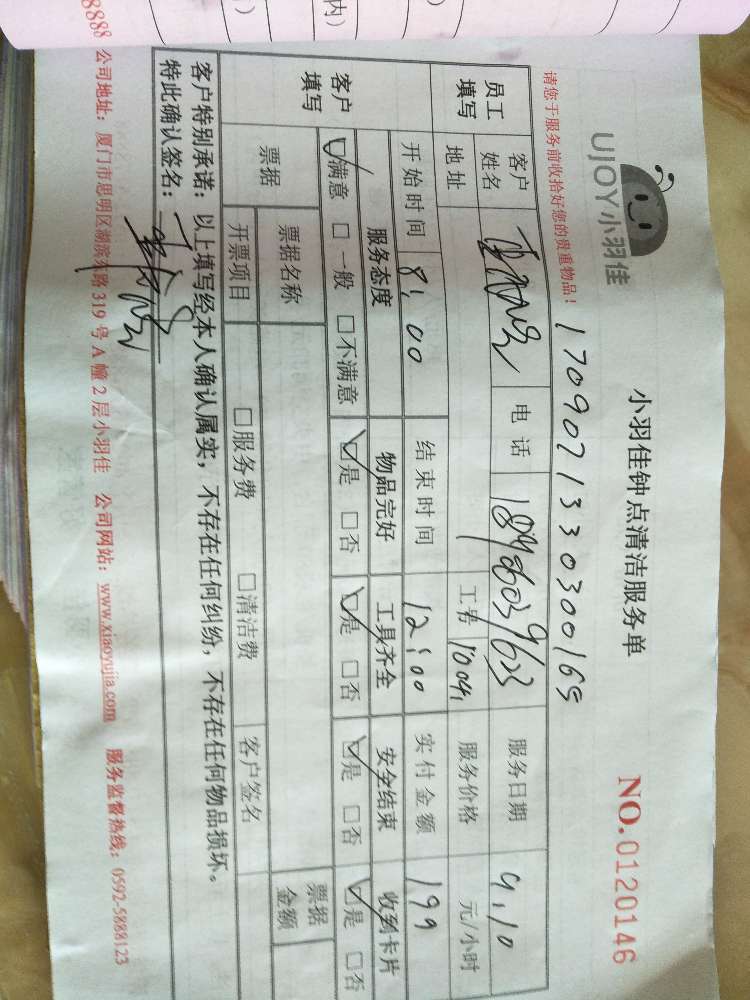 内）
）
UJOY小羽佳
小羽佳钟点清洁服务单
NO.0120146
170902133030016
请您于服务前收拾好您的贵重物品！
员工填写
客户姓名
电话
服务日期 9.10
地址
工号 10041
服务价格 元/小时
客户填写
开始时间 8:00
结束时间 12:00
实付金额 199
服务态度 物品完好 工具齐全 安全结束 收到卡片
☑满意 □一般 □不满意 ☑是 □否 ☑是 □否 ☑是 □否 ☑是 □否
票据
票据名称
票据金额
开票项目 □服务费 □清洁费 客户签名
客户特别承诺：以上填写经本人确认属实，不存在任何纠纷，不存在任何物品损坏。
特此确认签名：
8888 公司地址：厦门市思明区湖滨东路319号A幢2层小羽佳 公司网站：www.xiaoyujia.com 服务监督热线：0592-5888123